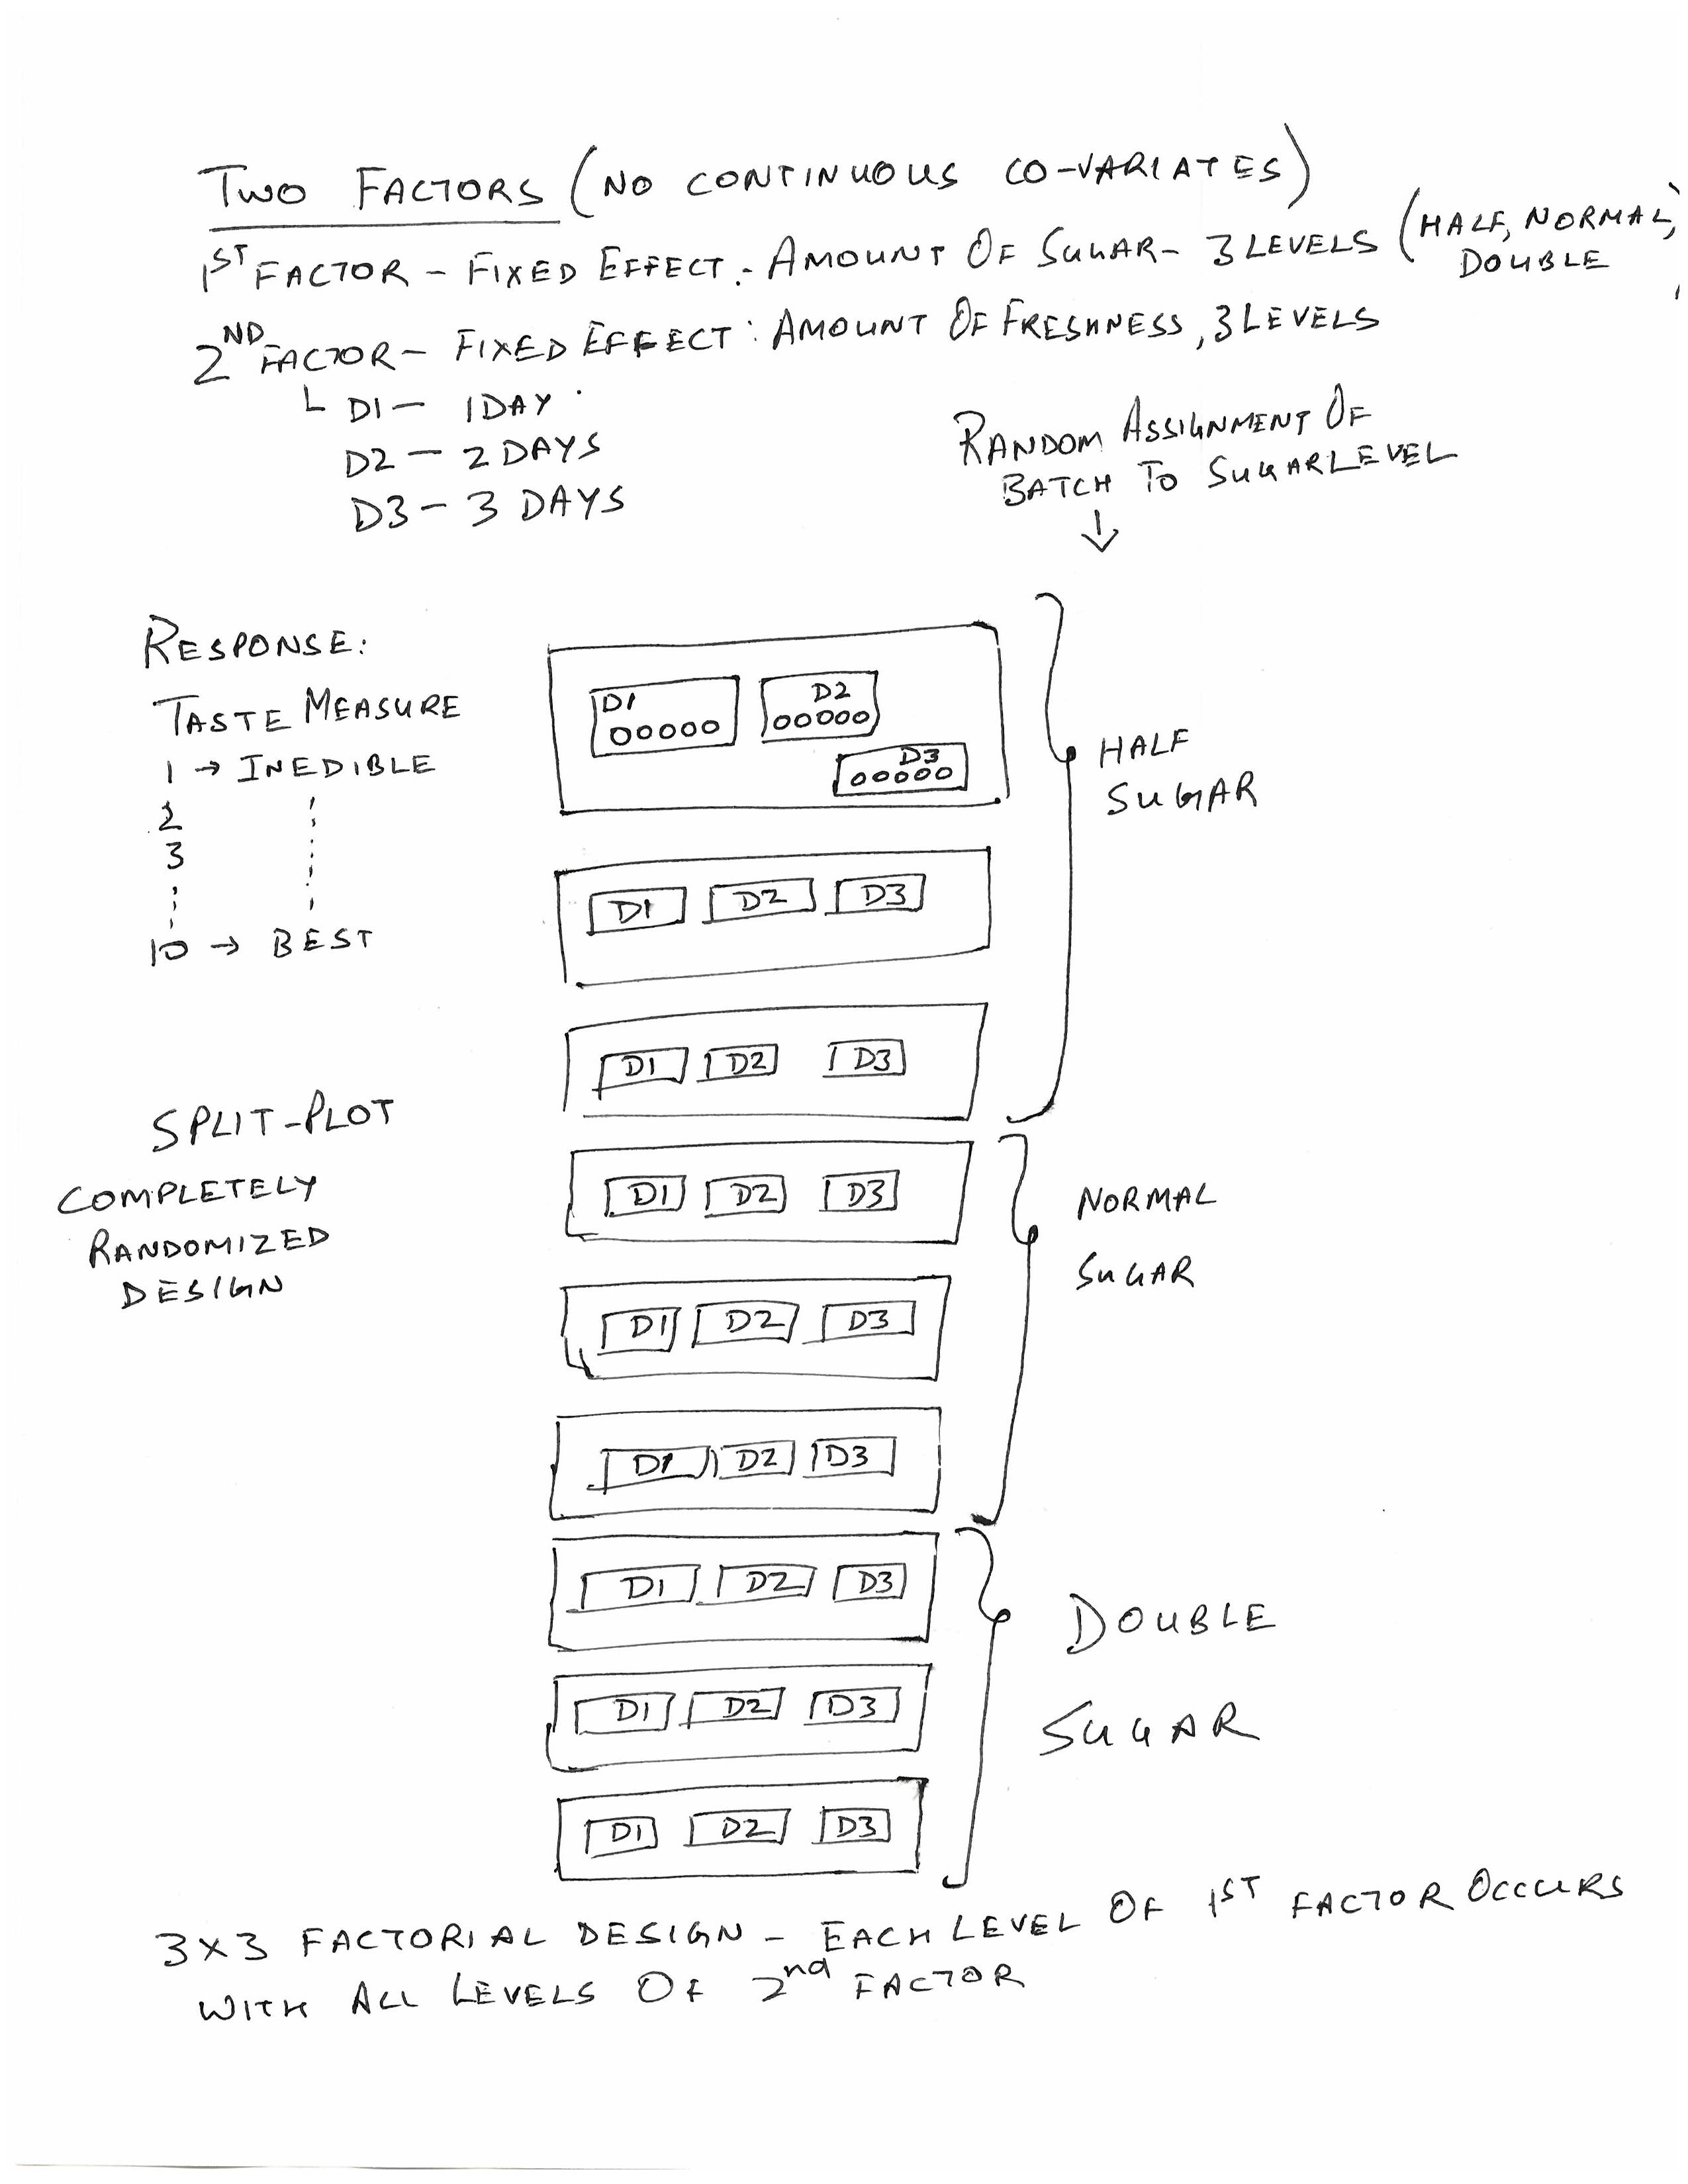 TWO FACTORS (NO CONTINUOUS CO-VARIATES)
1ST FACTOR - FIXED EFFECT - AMOUNT OF SUGAR - 3 LEVELS (HALF, NORMAL, DOUBLE
2ND FACTOR - FIXED EFFECT : AMOUNT OF FRESHNESS, 3 LEVELS
D1 - 1 DAY
D2 - 2 DAYS
D3 - 3 DAYS
RANDOM ASSIGNMENT OF
BATCH TO SUGAR LEVEL
↓
RESPONSE:
TASTE MEASURE
1 → INEDIBLE
2
3
10 → BEST
D1 D2
OOOOO OOOOO
D3
OOOOO
HALF
SUGAR
D1 D2 D3
D1 D2 D3
SPLIT-PLOT
COMPLETELY
RANDOMIZED
DESIGN
D1 D2 D3
NORMAL
SUGAR
D1 D2 D3
D1 D2 D3
D1 D2 D3
DOUBLE
SUGAR
D1 D2 D3
D1 D2 D3
3X3 FACTORIAL DESIGN - EACH LEVEL OF 1ST FACTOR OCCURS
WITH ALL LEVELS OF 2nd FACTOR